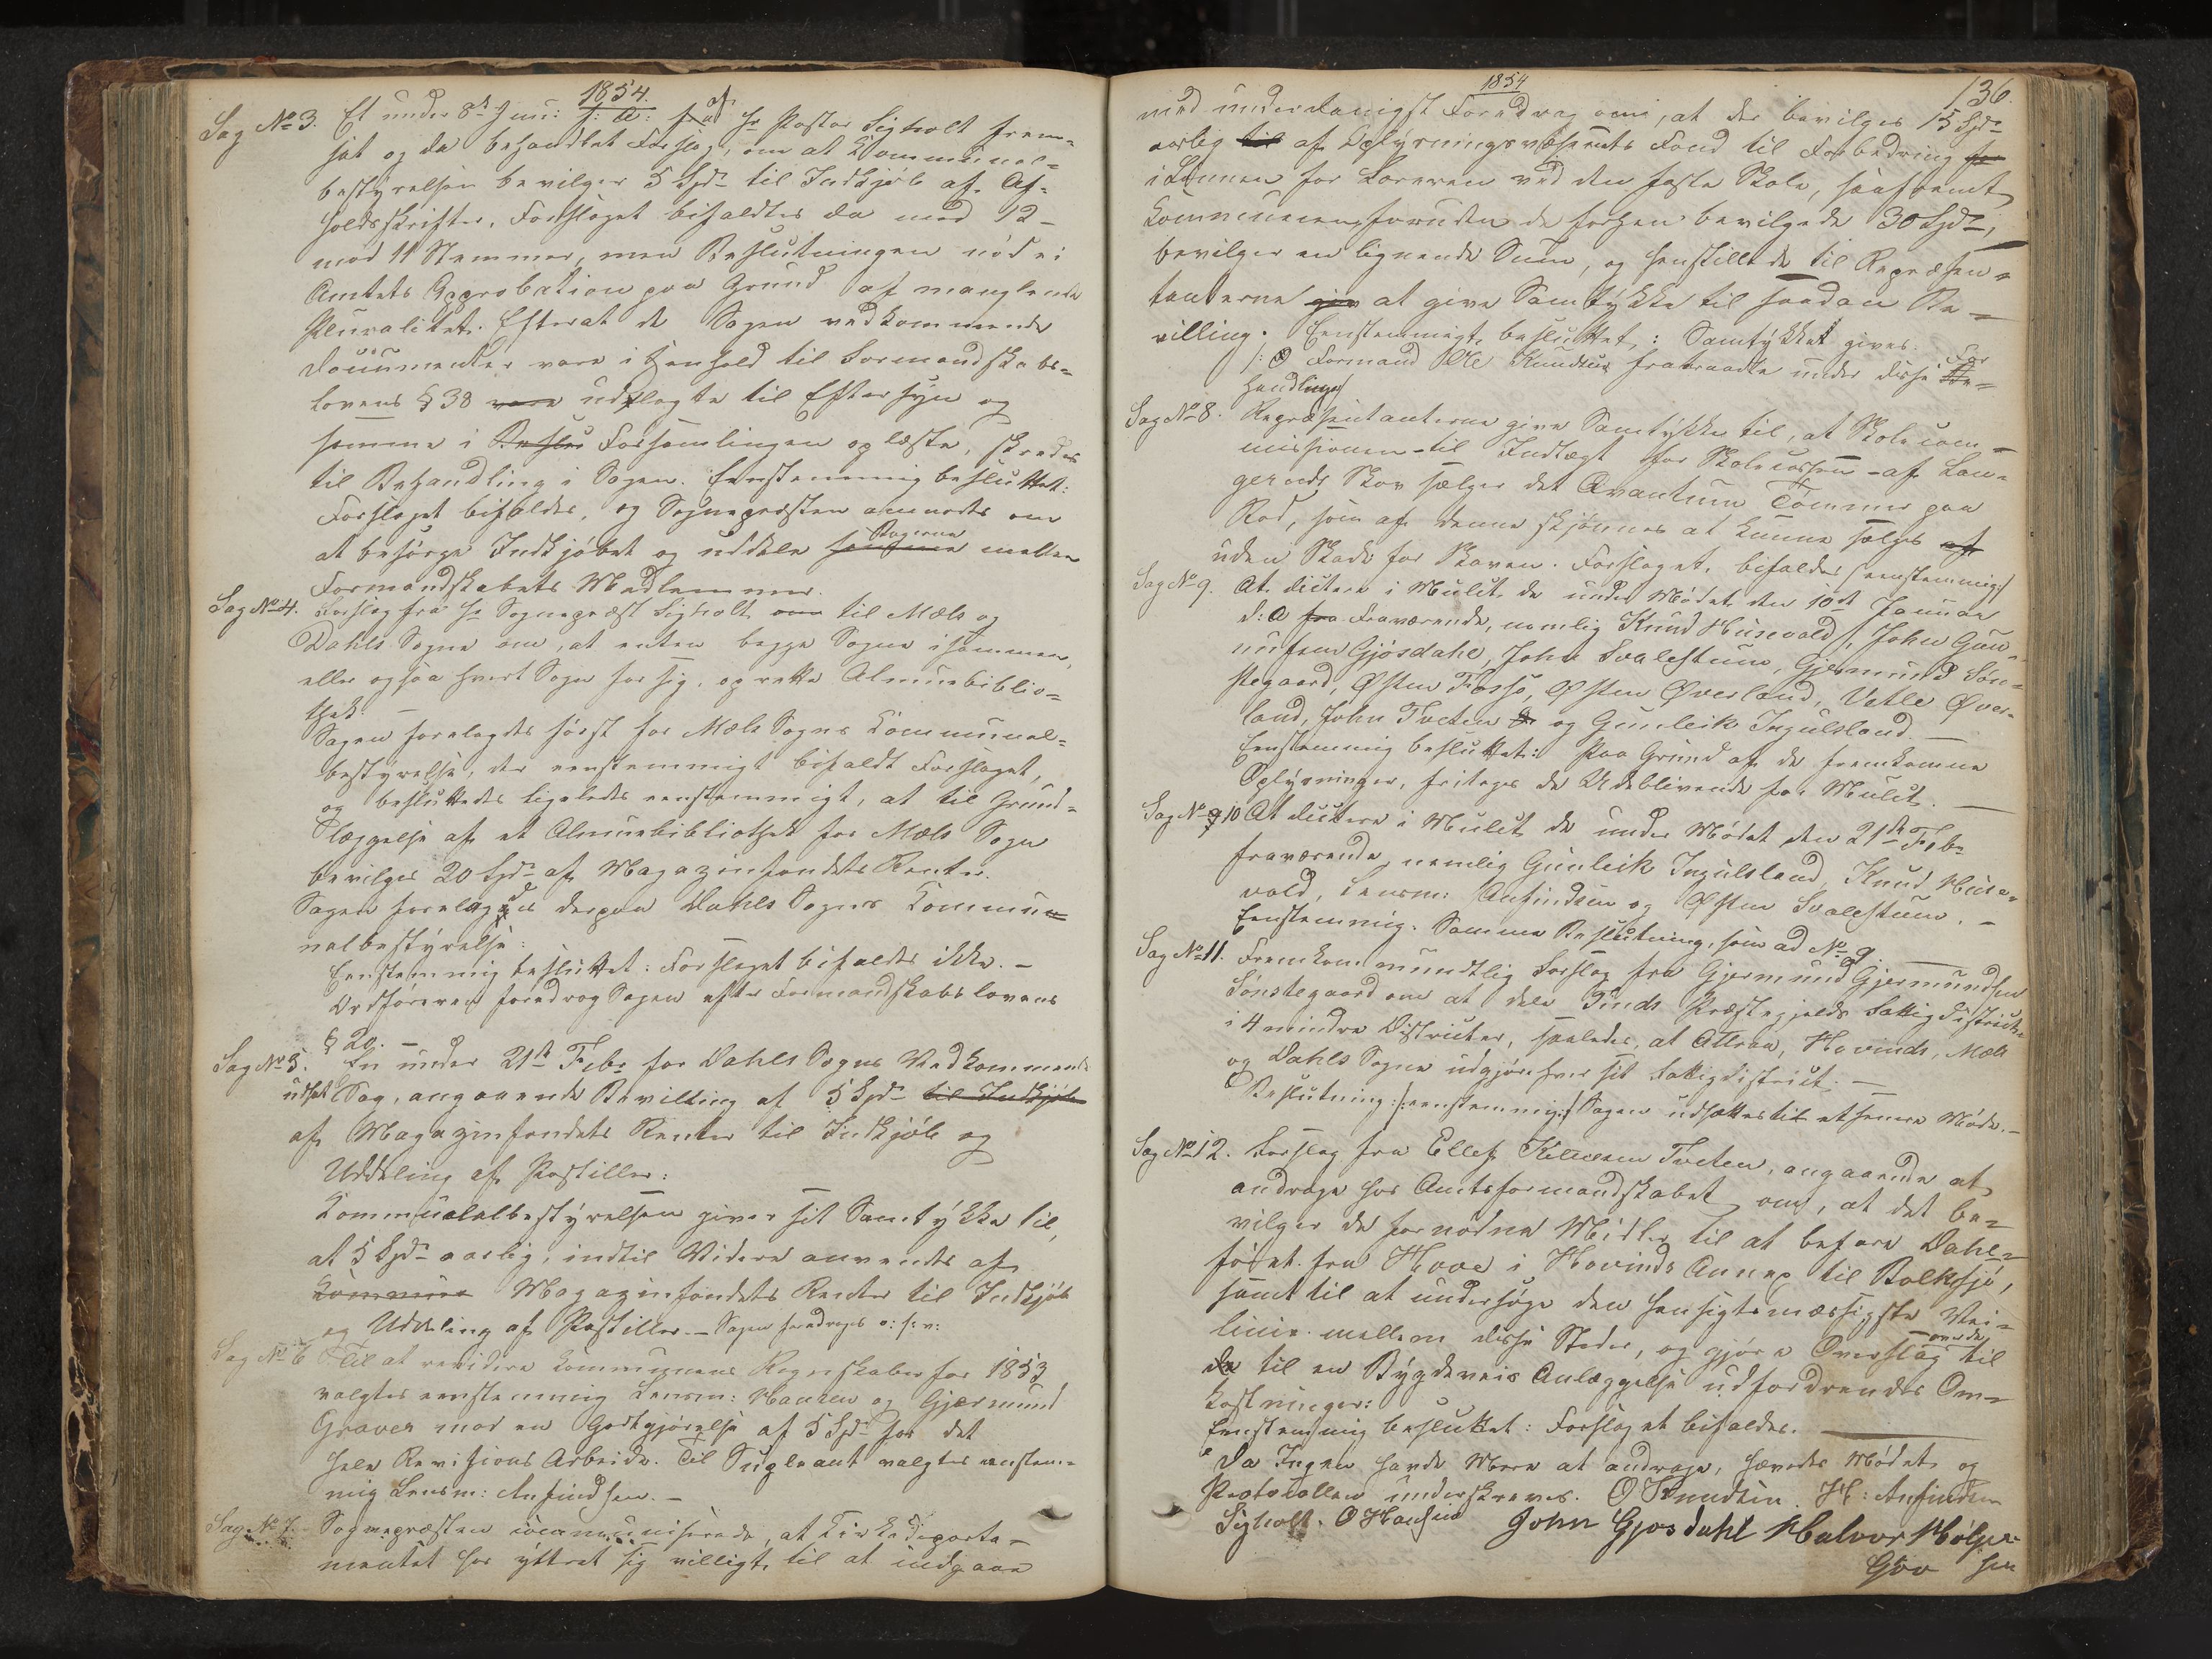 1854.
Sag No 3. Et under 8de Juni f: A: fra af Hr Pastor Sigholt frem-
sat og da behandlet Forslag, om at Communal-
bestyrelsen bevilger 5 Spd til Indkjøb af Af-
holdsskrifter. Forslaget bifaldtes da med 12
mod 11 Stemmer, men Beslutningen nød ei
Amtets Approbation paa Grund af manglende
Pluralitet. Efterat de Sagen vedkommende
Documenter vare i Henhold til Formandskabs-
Lovens § 38 vare udlagte til Eftersyn og
samme i Beslu Forsamlingen oplæste, skredes
til Behandling i Sagen. Eenstemmig besluttet:
Forslaget bifaldes, og Sognepræsten anmodes om
at besørge Indkjøbet og uddele samme Bøgerne mellem
Formandskabets Medlemmer.
Sag No 4. Forslag fra Hr Sognepræst Sigholt om til Mæls og
Dahls Sogne om, at enten begge Sogne isammen,
eller ogsaa hvert Sogn for sig, oprette Almuebiblio-
thek. —
Sagen forelagdes først for Mæls Sogns Communal-
bestyrelse, der eenstemmigt bifaldt Forslaget,
og besluttedes ligeledes eenstemmigt, at til Grund-
læggelse af et Almuebibliothek for Mæls Sogn
bevilges 20 Spd af Magazinfondets Renter.
Sagen forelagdes derpaa Dahls Sogns Commu-
nalbestyrelse:
Eenstemmig besluttet: Forslaget bifaldes ikke. —
Ordføreren foredrog Sagen efter Formandskabslovens
§ 20. —
Sag No 5. En under 21de Febr for Dahls Sogns Vedkommende
udsat Sag, angaaende Bevilling af 5 Spd til Indkjøb
af Magazinfondets Renter til Indkjøb og
Uddeling af Postiller:
Communalbestyrelsen giver sit Samtykke til,
at 5 Spd aarlig, indtil Videre anvendes af
Commune Magazinfondets Renter til Indkjøb
og Uddeling af Postiller. — Sagen foredroges o: s: v:
Sag No 6 Til at revidere Communens Regnskaber for 1853
valgtes eenstemmig Lensm: Hansen og Gjermund
Graver mod en Godtgjørelse af 5 Spd for det
hele Revisions Arbeide. Til Supleant valgtes eenstem-
mig Lensm: Anfindsen. —
Sag No 7. Sognepræsten communiserede, at Kirkedeparte-
mentet har yttret sig villigt til at indgaae
1854
136.
med underdanigst Foredrag om, at der bevilges 15 Spd
aarlig til af Oplysningsvæsenets Fond til Forbedring for
i Lønnen for Læreren ved den faste Skole, saafremt
Communen, foruden de forhen bevilgede 30 Spd,
bevilger en lignende Sum, og henstillede til Repræsen-
tanterne giv at give Samtykke til saadan Be-
villing. Eenstemmigt besluttet: Samtykket gives.
/: Formand Ole Knudsen fratraadte under disse For
handlinger/
Sag No 8. Repræsentanterne give Samtykke til, at Skolecom-
missionen til Indtægt for Skolecassen af Lan-
geruds Skov sælger det Qvantum Tømmer paa
Rod, som af denne skjønnes at kunne sælges af
uden Skade for Skoven. Forslaget bifaldes (eenstemmig:/
Sag No 9. At dictere i Mulct de under Mødet den 10de Januar
d: A fra Fraværende, nemlig Knud Husevold, John Gun-
nufsen Gjøsdahl, John Svalestuen, Gjermund Søn-
stegaard, Østen Fosso, Østen Øverland, Vetle Øver-
land, John Tveten og Gunleik Ingulsland. —
Eenstemmig besluttet: Paa Grund af de fremkomne
Oplysninger, fritages de Udeblivende for Mulct. —
Sag No 10 At dictere i Mulct de under Mødet den 21de Febr
fraværende, nemlig Gunleik Ingulsland, Knud Huse-
vold, Lensm: Anfindsen og Østen Svalestuen. —
Eenstemmig. Samme Beslutning, som ad No 9.
Sag No 11. Fremkom mundtlig Forslag fra Gjermund Gjermundsen
Sønstegaard om at dele Tinds Præstegjelds Fattigdistrict
i 4 mindre Districter, saaledes, at Attraa, Hovinds, Mæls
og Dahls Sogne udgjøre hver sit Fattigdistrict. —
Beslutning: /:eenstemmig:/ Sagen udsættes til et senere Møde. —
Sag No 12. Forslag fra Ellef Tveten, angaaende at
andrage hos Amtsformandskabet om, at det be-
vilger de fornødne Midler til at befare Dahl-
føret fra Hove i Hovinds Annex til Bolkesjø,
samt til at undersøge den hensigtsmæssigste Vei-
linie mellem disse Steder, og gjøre Overslag over de til
de til en Bygdeveis Anlæggelse udfordrendes Om-
kostninger:
Eenstemmig besluttet: Forslaget bifaldes. —
Da Ingen havde Mere at andrage, hævedes Mødet og
Protocollen underskreves. O Knudsen. H: Anfindsen
Sigholt. O Hansen John Gjøsdahl Halvor Hølje
Gøv sen